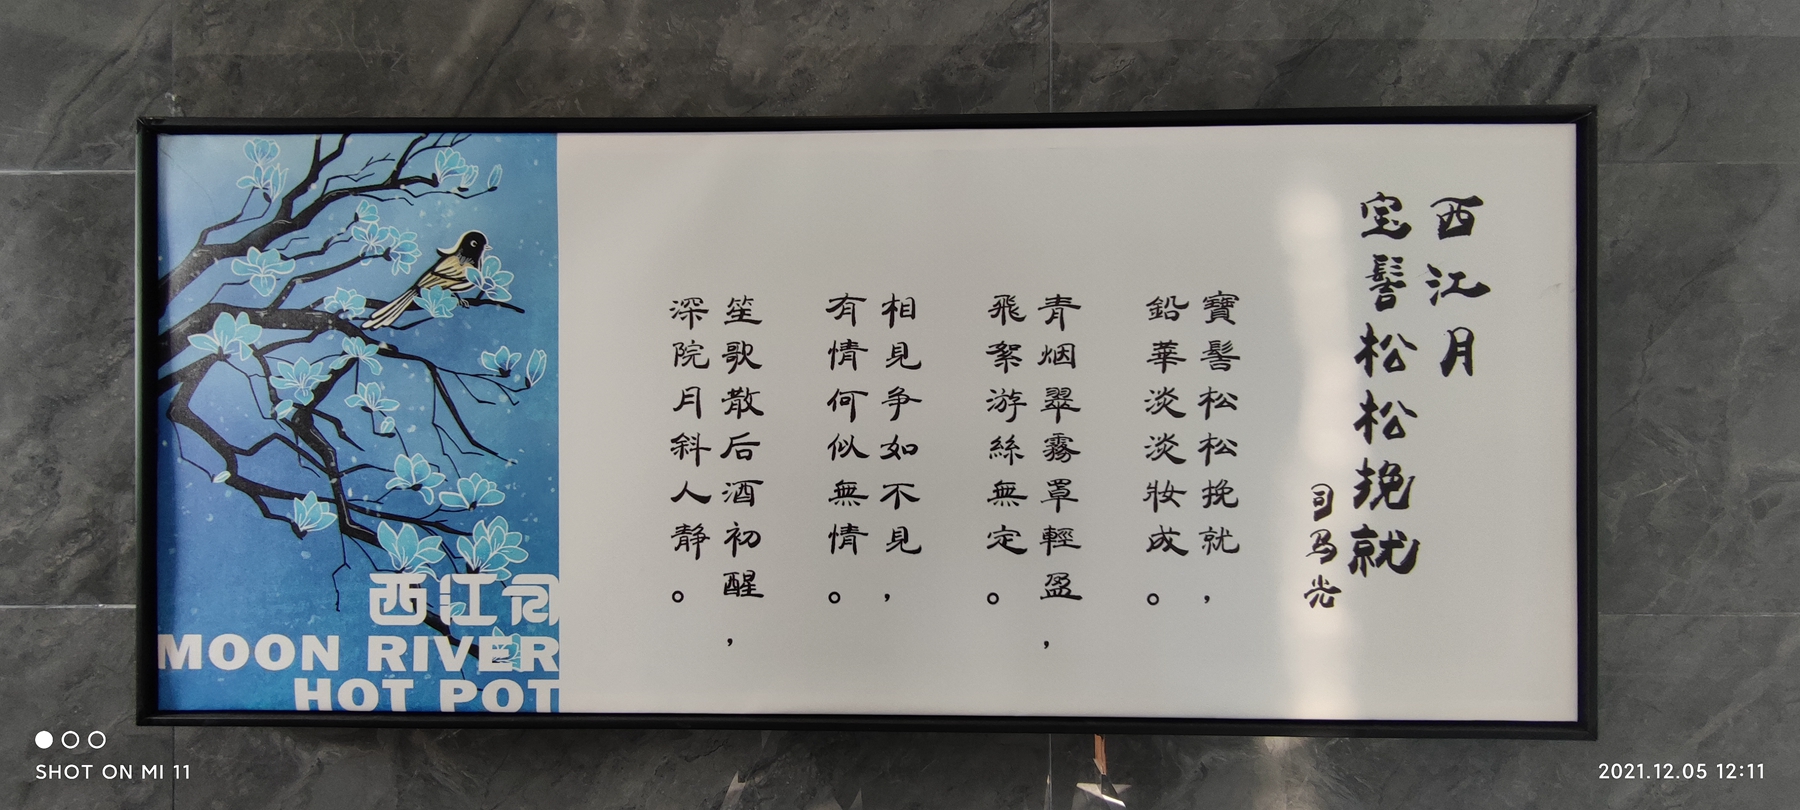 西江月
宝髻松松挽就
司马光
寶髻松松挽就，
鉛華淡淡妝成。
青烟翠霧罩輕盈，
飛絮游絲無定。
相見争如不見，
有情何似無情。
笙歌散后酒初醒，
深院月斜人静。
西江月
MOON RIVER
HOT POT
SHOT ON MI 11
2021.12.05 12:11